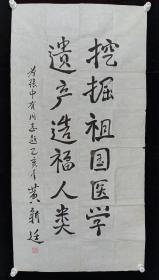 挖掘祖国医学
遗产造福人类
为张中有同志题乙亥年黄新廷